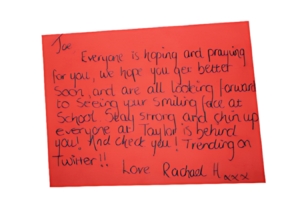 Joe
Everyone is hoping and praying
for you, we hope you get better
soon, and are all looking forward
to seeing your smiling face at
School. Stay strong and chin up
everyone at Taylor is behind
you! And check you! Trending on
twitter!!
Love Rachael H xxxx